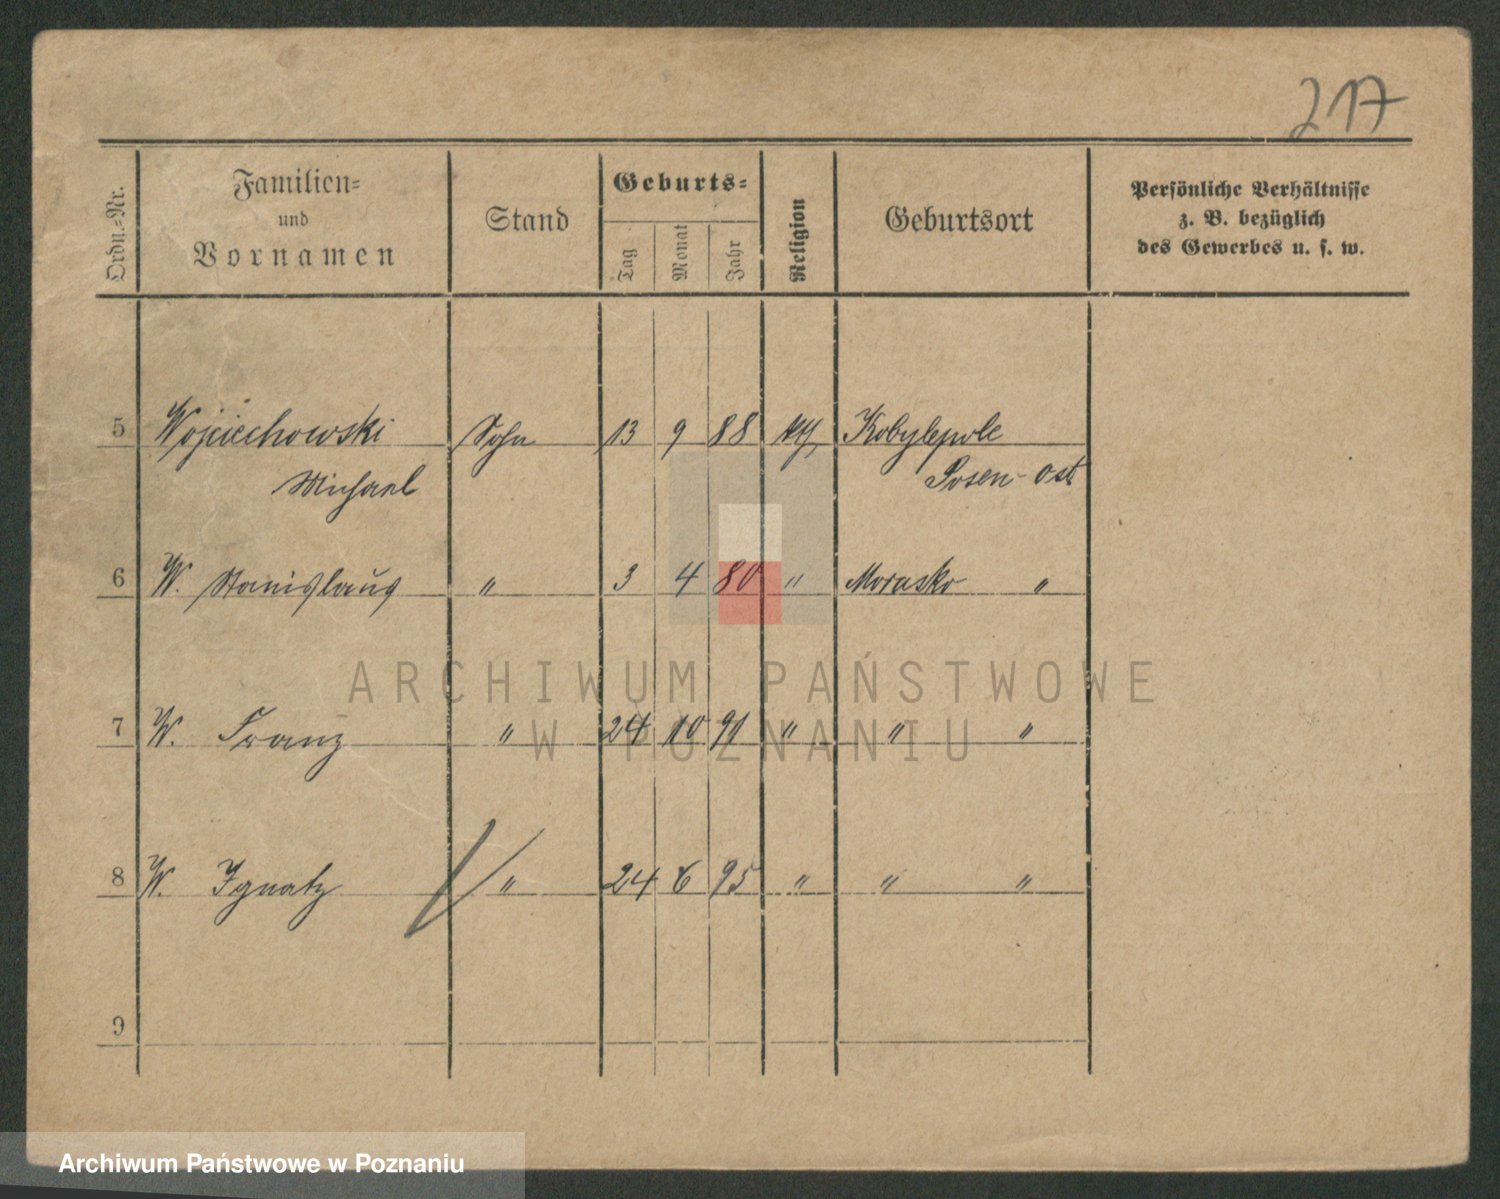 217
Ordn.-Nr.
Familien-
und
Vornamen
Stand
Geburts-
Tag
Monat
Jahr
Religion
Geburtsort
Persönliche Verhältnisse
z. B. bezüglich
des Gewerbes u. s. w.
5 Wojciechowski Sohn 13 9 88 kth Kobylepole
Michael Posen-Ost
6 W. Stanislaus " 3 4 80 " Morasko "
7 W. Franz " 24 10 91 " " "
8 W. Ignatz " 24 6 95 " " "
9
ARCHIWUM PAŃSTWOWE
W POZNANIU
Archiwum Państwowe w Poznaniu